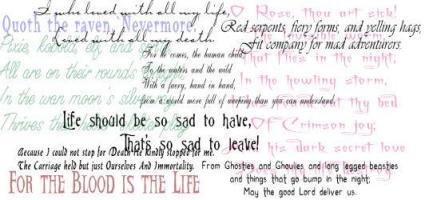 I who loved with all my life,
Quoth the raven, Nevermore
Loved with all my death
Red serpents, fiery forms, and yelling hags,
Fit company for mad adventurers.
O Rose, thou art sick!
That flies in the night,
In the howling storm,
thy bed
Of Crimson joy;
his dark secret love
Pixie, kobold, elf, and
All are on their rounds
In the wan moon's silver
Thrives
For he comes, the human child,
To the waters and the wild
With a faery, hand in hand,
from a world more full of weeping than you can understand.
Life should be so sad to have,
That's so sad to leave!
Because I could not stop for Death He kindly stopped for me.
The Carriage held but just Ourselves And Immortality.
From Ghosties and Ghoulies and long legged beasties
and things that go bump in the night;
May the good Lord deliver us.
For the Blood is the Life